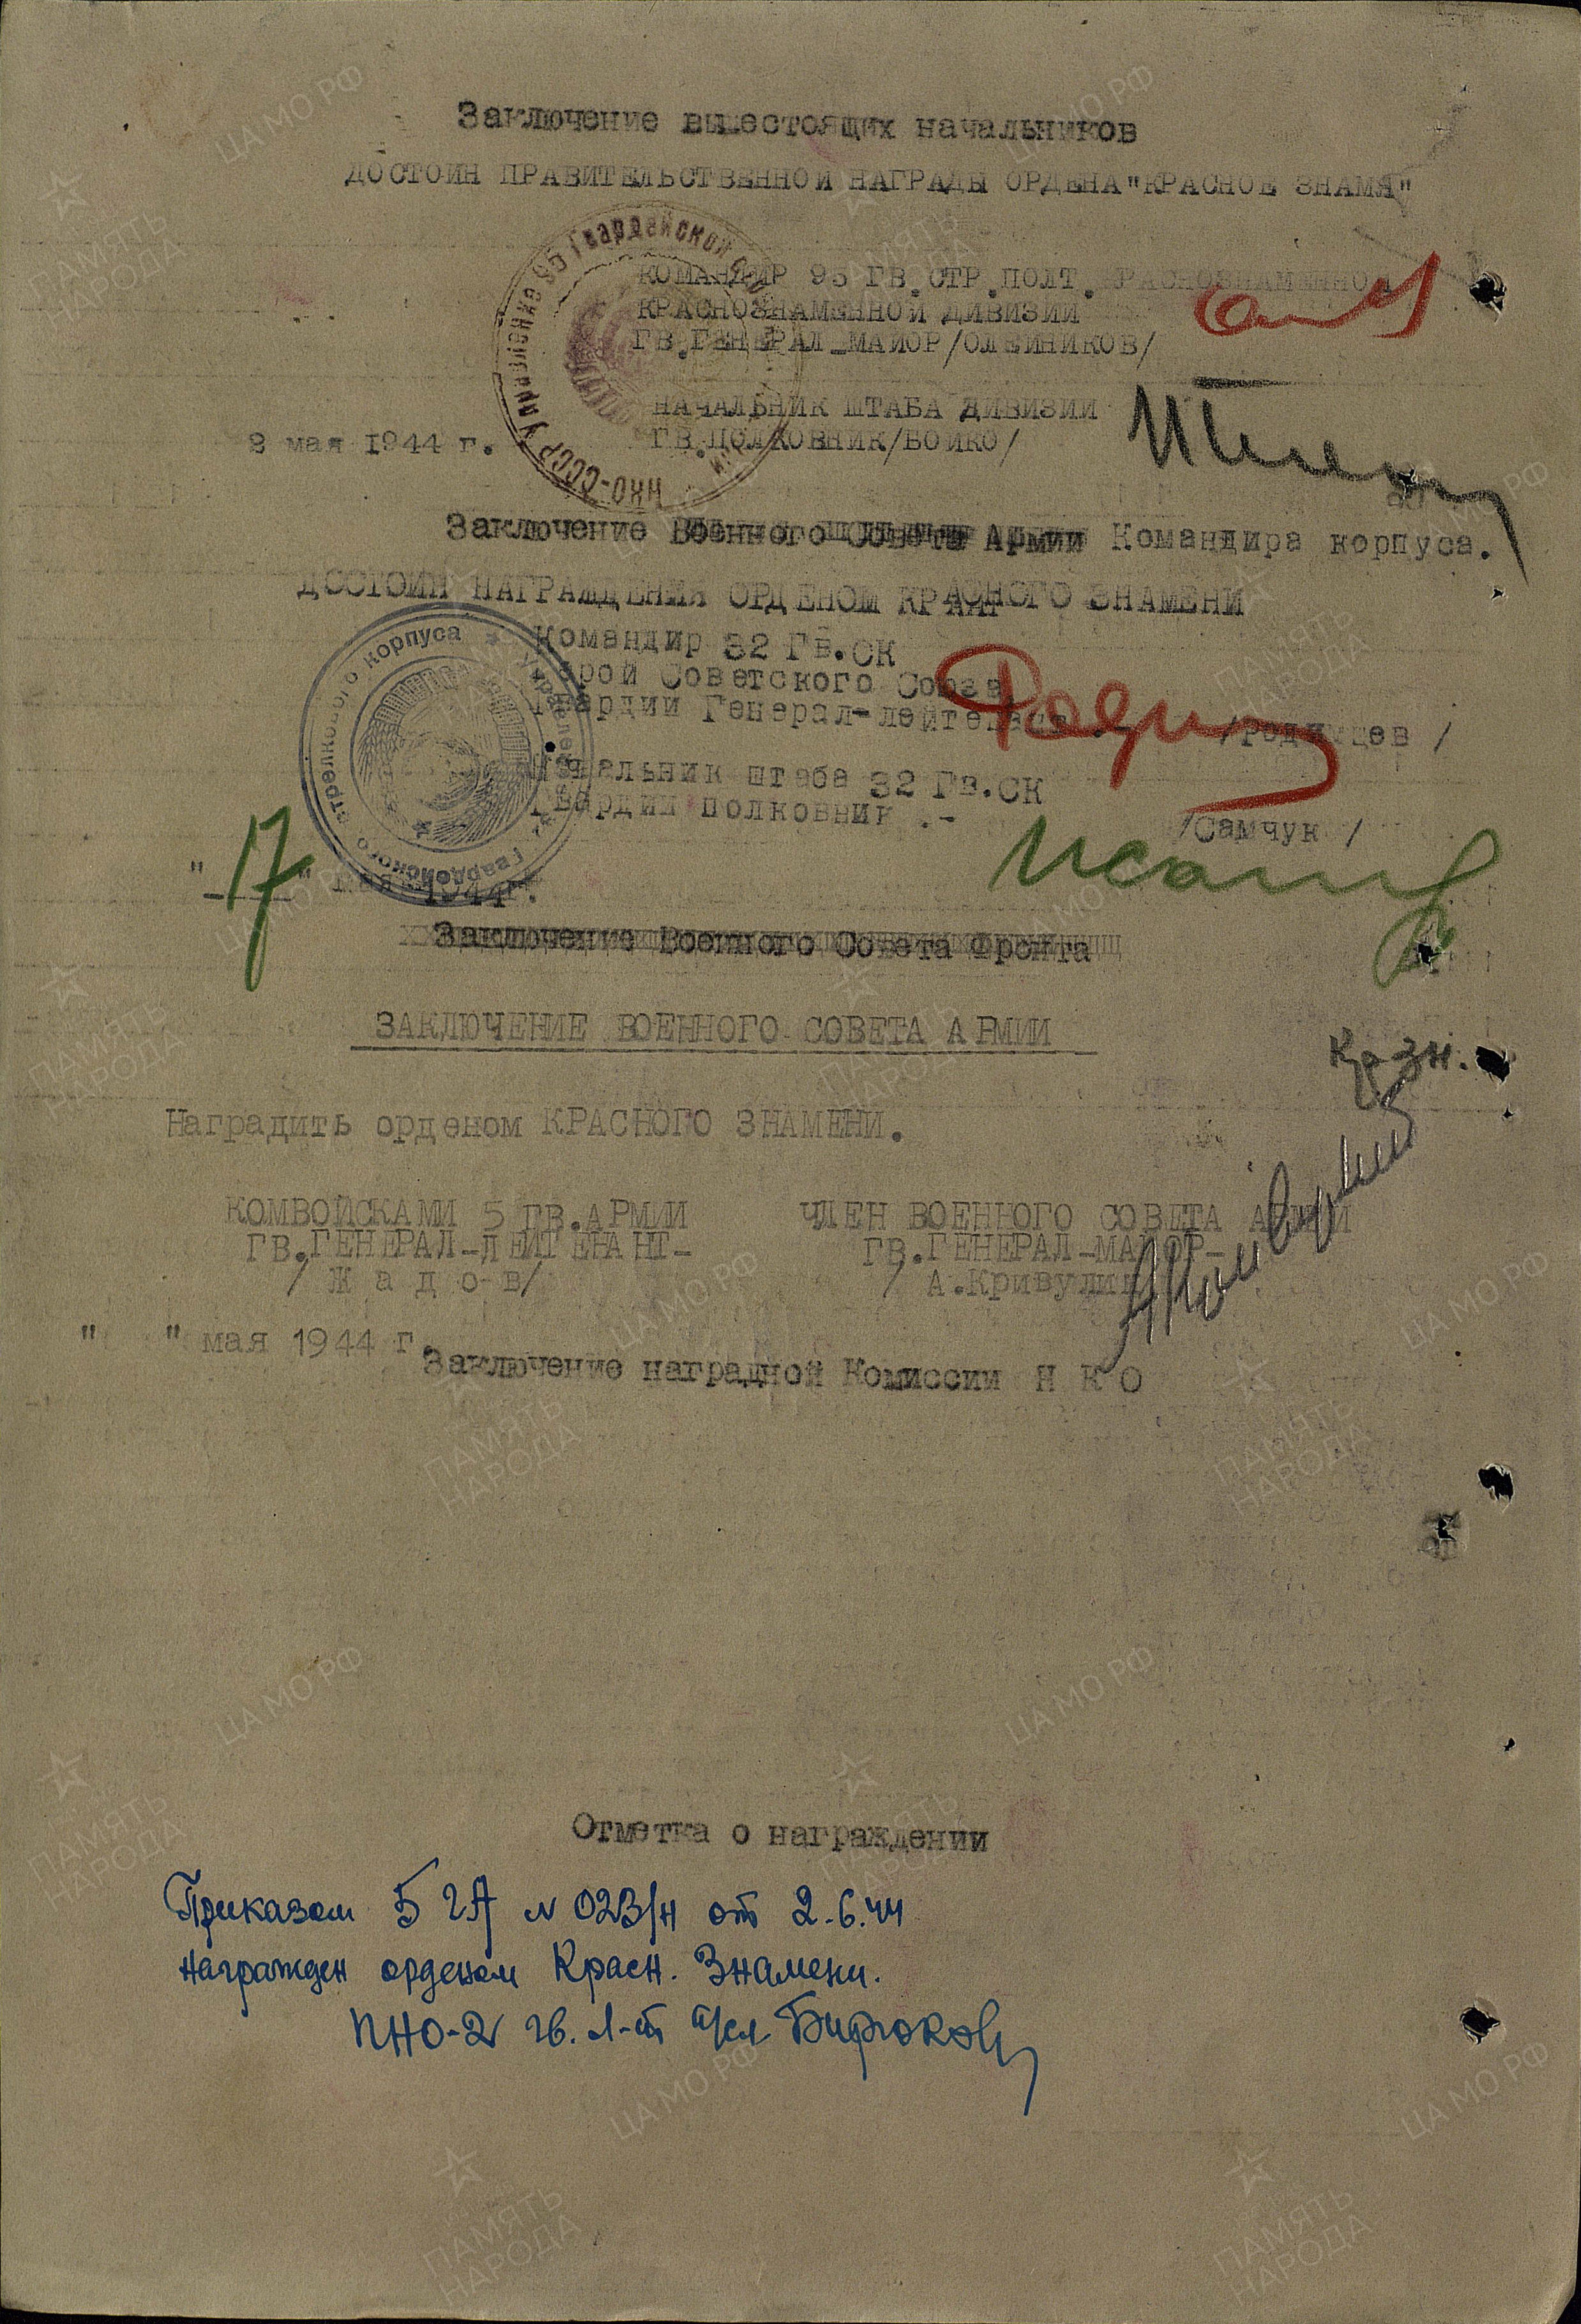 Заключение вышестоящих начальников
ДОСТОИН ПРАВИТЕЛЬСТВЕННОЙ НАГРАДЫ ОРДЕНА "КРАСНОЕ ЗНАМЯ"
КОМАНДИР 95 ГВ.СТР.ПОЛТ. КРАСНОЗНАМЕННОЙ
КРАСНОЗНАМЕННОЙ ДИВИЗИИ
ГВ.ГЕНЕРАЛ-МАЙОР/ОЛЕЙНИКОВ/
НАЧАЛЬНИК ШТАБА ДИВИЗИИ
ГВ.ПОЛКОВНИК/БОЙКО/
8 мая 1944 г.
Заключение Военного Совета Армии Командира корпуса.
ДОСТОИН НАГРАЖДЕНИЯ ОРДЕНОМ КРАСНОГО ЗНАМЕНИ
Командир 32 Гв.СК
Герой Советского Союза
Гвардии Генерал-лейтенант /Родимцев /
Начальник штаба 32 Гв.СК
Гвардии полковник .- /Самчук /
" 17 " мая 1944 г.
Заключение Военного Совета Фронта
ЗАКЛЮЧЕНИЕ ВОЕННОГО СОВЕТА АРМИИ
Кр. Зн.
Наградить орденом КРАСНОГО ЗНАМЕНИ.
КОМВОЙСКАМИ 5 ГВ.АРМИИ ЧЛЕН ВОЕННОГО СОВЕТА АРМИИ
ГВ.ГЕНЕРАЛ-ЛЕЙТЕНАНТ- ГВ.ГЕНЕРАЛ-МАЙОР-
/ Ж а д о в/ / А.Кривулин/
" " мая 1944 г.
Заключение наградной Комиссии Н К О
Отметка о награждении
Приказом 5 гА № 023/н от 2.6.44
награжден орденом Красн. Знамени.
ПНО-2 гв. л-т а/сл Бирюков